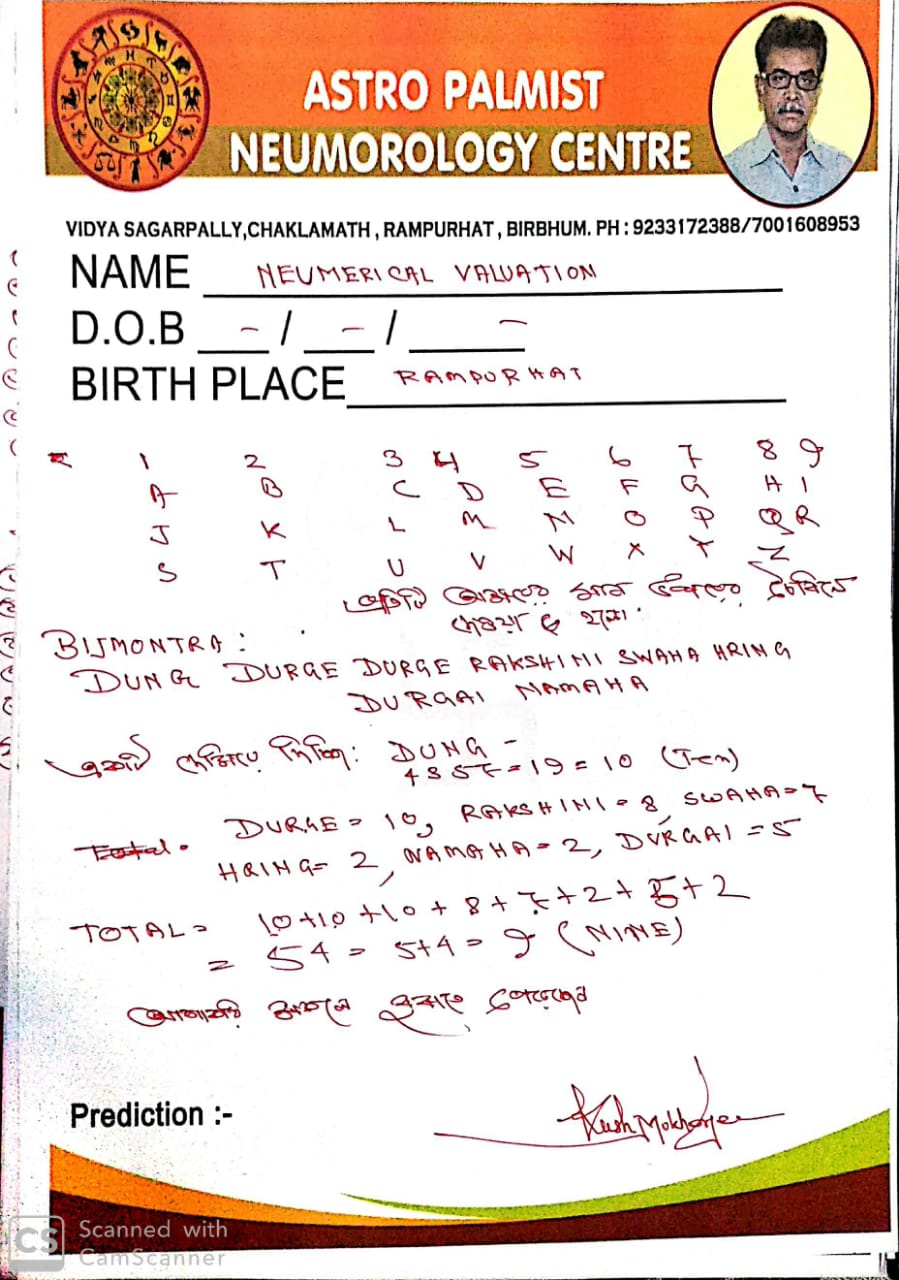 ASTRO PALMIST
NEUMOROLOGY CENTRE
VIDYA SAGARPALLY,CHAKLAMATH , RAMPURHAT , BIRBHUM. PH : 9233172388/7001608953
NAME NEUMERICAL VALUATION
D.O.B - / - / -
BIRTH PLACE RAMPURHAT
1 2 3 4 5 6 7 8 9
A B C D E F G H I
J K L M N O P Q R
S T U V W X Y Z
প্রতিটি টেবিলে
দেওয়া হলো।
BIJMONTRA :
DUNG DURGE DURGE RAKSHINI SWAHA HRING
DURGAI NAMAHA
একটি দেখিয়ে দিচ্ছি: DUNG -
4357=19=10 (Ten)
Total. DURGE = 10, RAKSHINI = 8, SWAHA=7
HRING= 2, NAMAHA = 2, DURGAI = 5
TOTAL= 10+10+10+8+7+2+5+2
= 54 = 5+4 = 9 (NINE)
Prediction :-
Kush Mokherjee
CS Scanned with
CamScanner